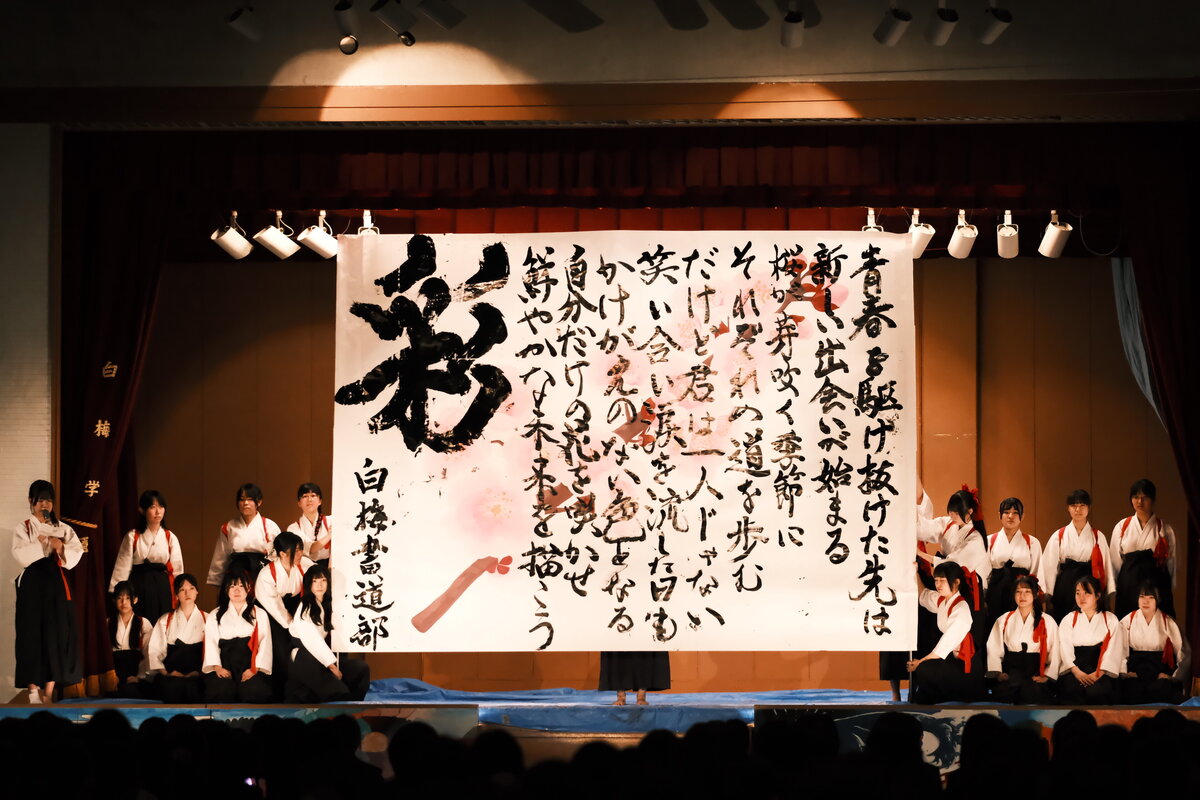 青春を駆け抜けた先は
新しい出会いが始まる
桜が芽吹く季節に
それぞれの道を歩む
だけど君は一人じゃない
笑い合い涙を流した日も
かけがえのない色となる
自分だけの花を咲かせ
鮮やかな未来を描こう
彩
白梅書道部
白梅学